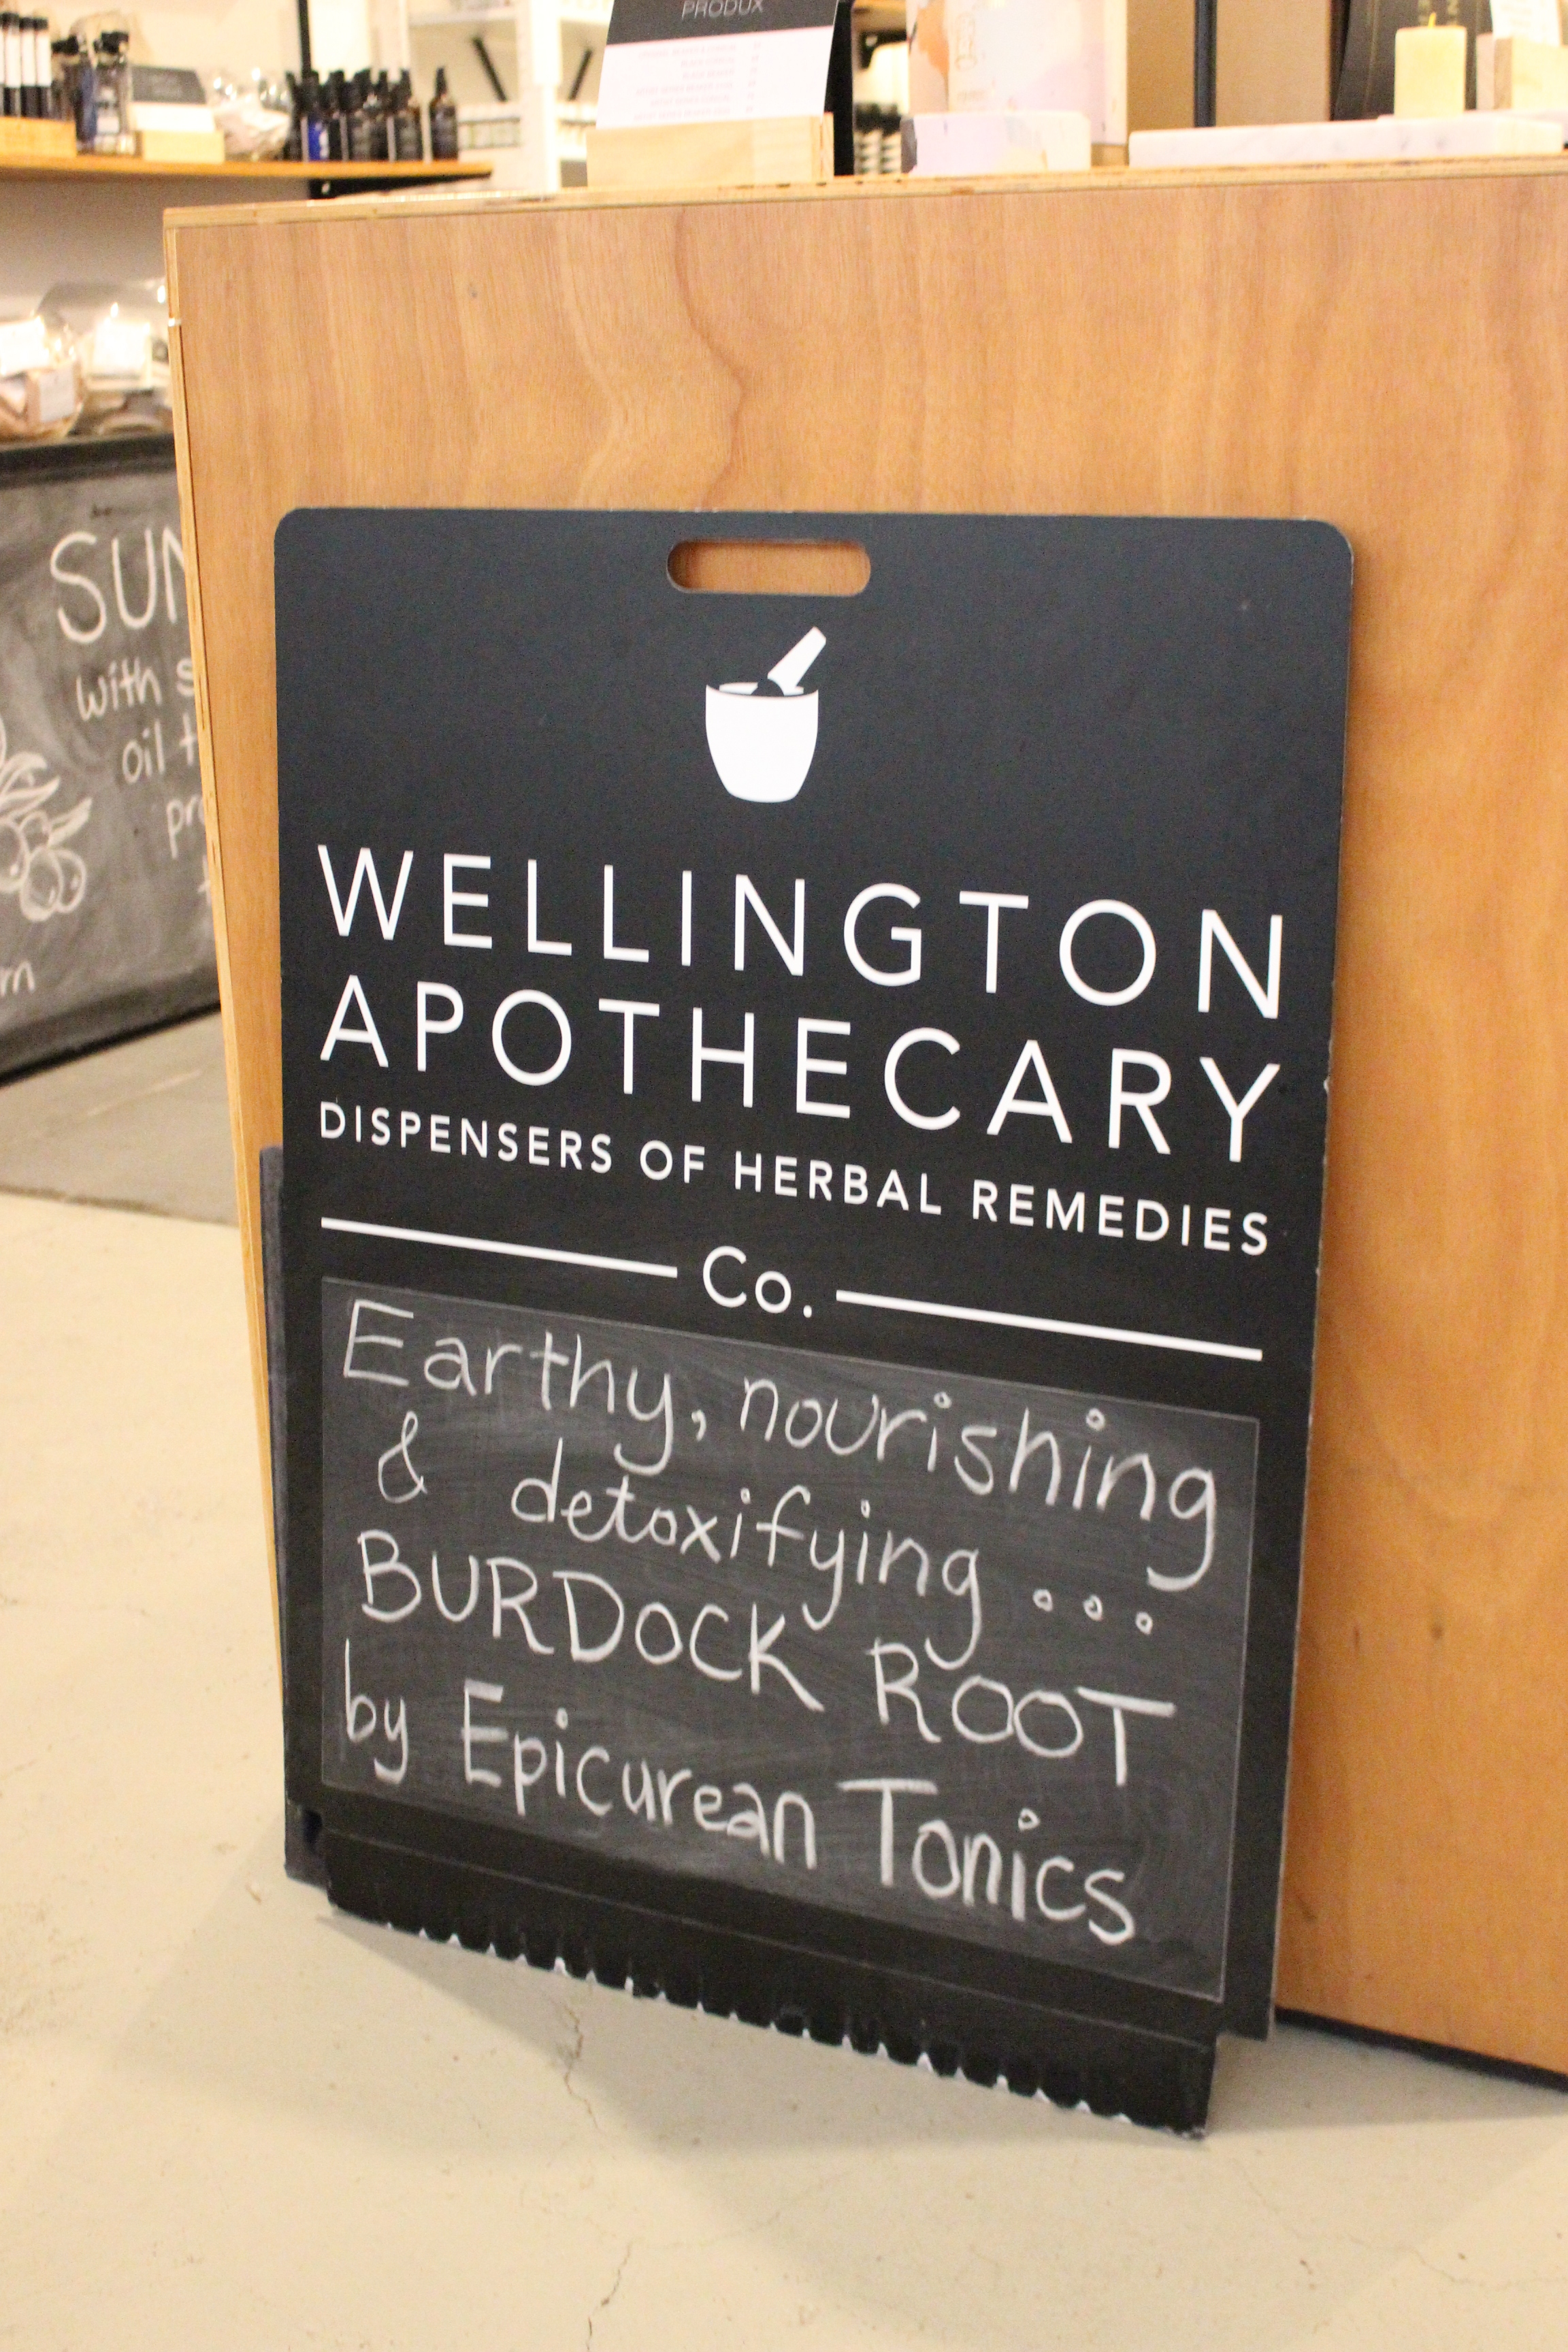 PRODUX
WELLINGTON
APOTHECARY
DISPENSERS OF HERBAL REMEDIES
Co.
Earthy, nourishing
& detoxifying...
BURDOCK ROOT
by Epicurean Tonics
SUN
with s
oil t
pro
t
rn